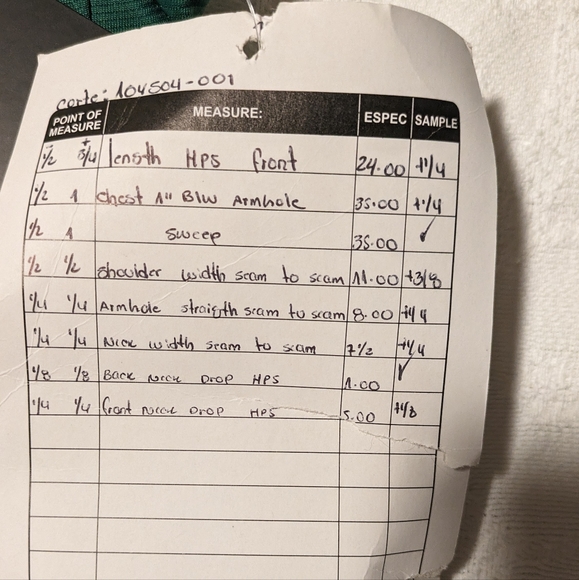 corte: 104504-001
POINT OF MEASURE MEASURE: ESPEC SAMPLE
-1/2 +3/4 length HPS front 24.00 +1/4
1/2 1 chest 1" Blw Armhole 35.00 +1/4
1/2 1 sweep 35.00 ✓
1/2 1/2 shoulder width seam to seam 11.00 +3/8
1/4 1/4 Armhole straigth seam to seam 8.00 +1/4
1/4 1/4 Neck width seam to seam 7 1/2 +1/4
1/8 1/8 Back neck Drop HPS 1.00 ✓
1/4 1/4 front neck Drop HPS 5.00 +1/8